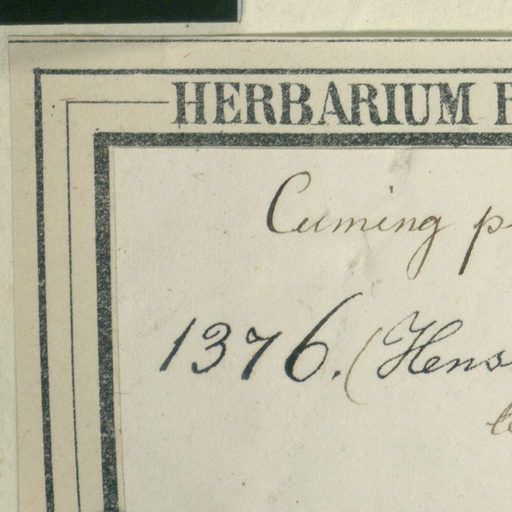 HERBARIUM
Cuming
1376. (Hens